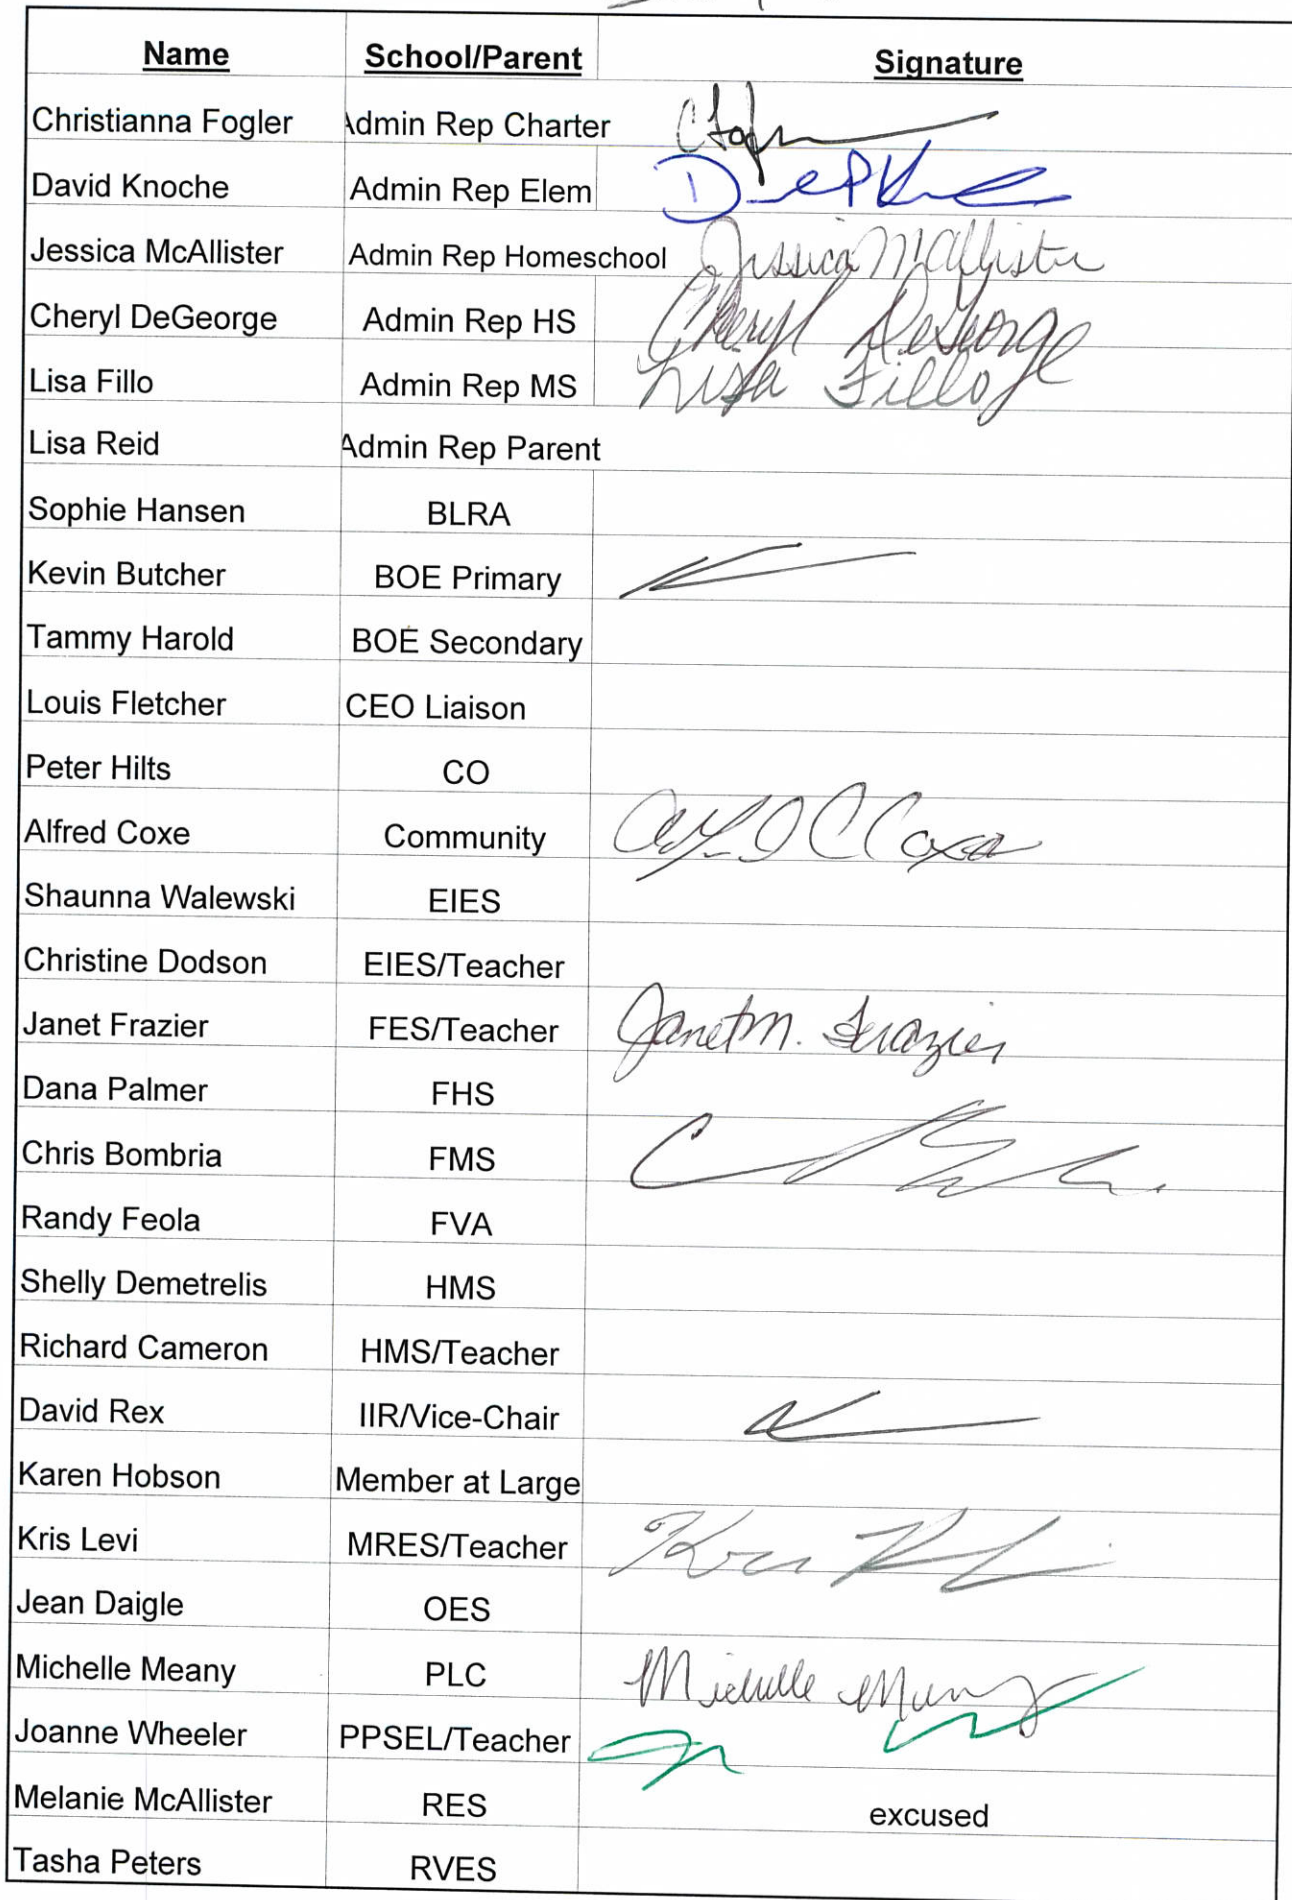 Name School/Parent Signature
Christianna Fogler Admin Rep Charter
David Knoche Admin Rep Elem
Jessica McAllister Admin Rep Homeschool Jessica McAllister
Cheryl DeGeorge Admin Rep HS Cheryl DeGeorge
Lisa Fillo Admin Rep MS Lisa Fillo
Lisa Reid Admin Rep Parent
Sophie Hansen BLRA
Kevin Butcher BOE Primary
Tammy Harold BOE Secondary
Louis Fletcher CEO Liaison
Peter Hilts CO
Alfred Coxe Community C Coxe
Shaunna Walewski EIES
Christine Dodson EIES/Teacher
Janet Frazier FES/Teacher Janet M. Frazier
Dana Palmer FHS
Chris Bombria FMS
Randy Feola FVA
Shelly Demetrelis HMS
Richard Cameron HMS/Teacher
David Rex IIR/Vice-Chair
Karen Hobson Member at Large
Kris Levi MRES/Teacher
Jean Daigle OES
Michelle Meany PLC Michelle Meany
Joanne Wheeler PPSEL/Teacher
Melanie McAllister RES excused
Tasha Peters RVES